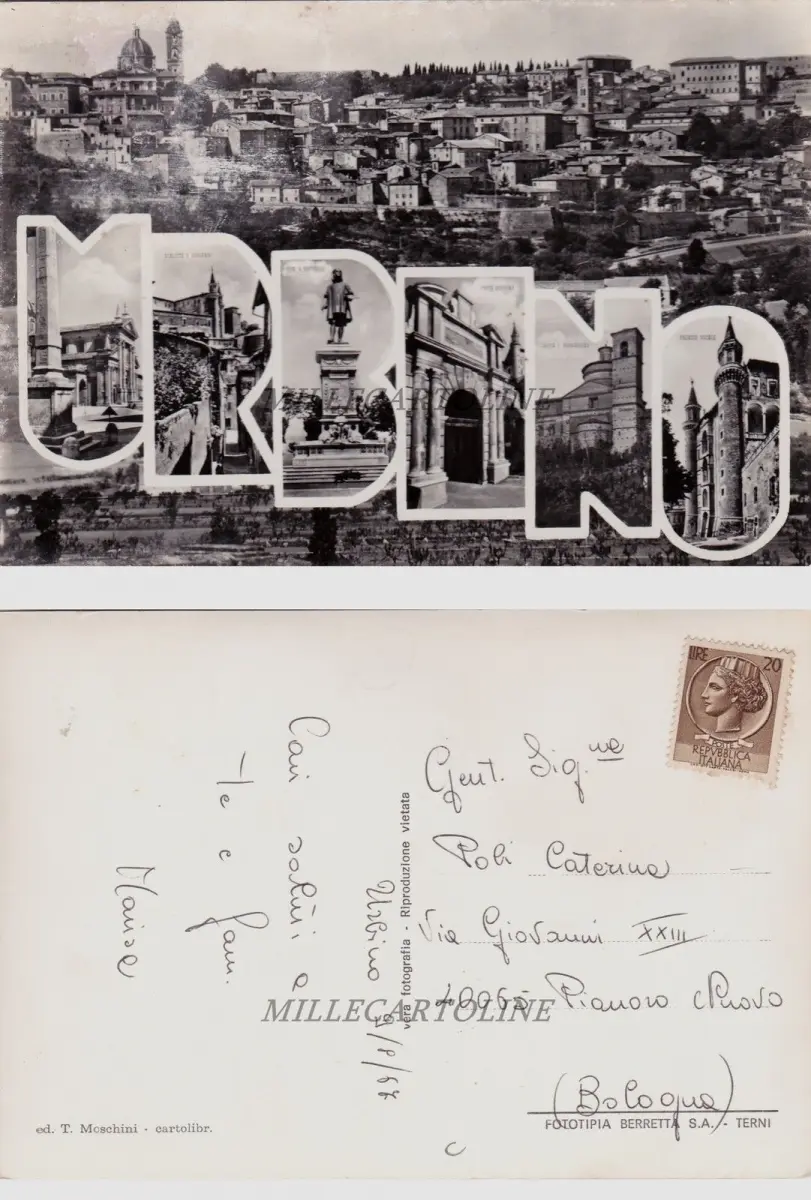 URBINO
MILLECARTOLINE
LIRE 20
POSTE
REPVBBLICA
ITALIANA
Cari saluti a
Te e fam.
Marisa
Urbino 9/8/68
vera fotografia - Riproduzione vietata
Gent. Sig.na
Poli Caterina
Via Giovanni XXIII
40065 Pianoro Nuovo
(Bologna)
MILLECARTOLINE
ed. T. Moschini - cartolibr.
FOTOTIPIA BERRETTA S.A. - TERNI